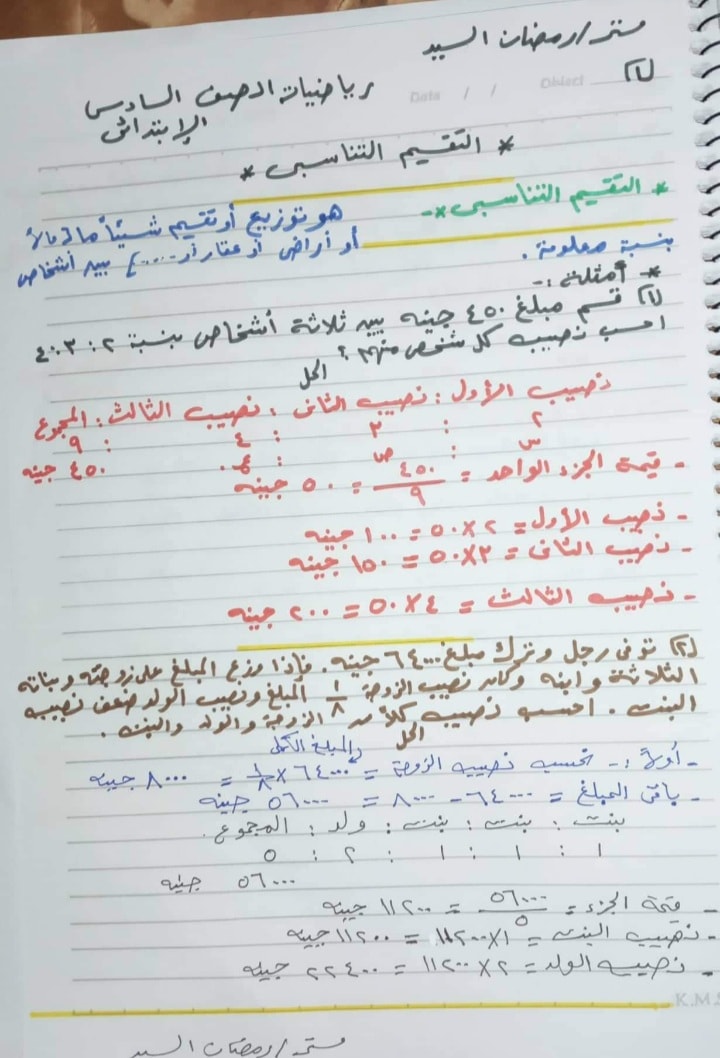 مستر/رمضان السيد
(١) Data / / Object
رياضيات الصف السادس
الإبتدائى
* التقسيم التناسبى *
* التقسيم التناسبى *- هو توزيع أو تقسيم شيئاً ما (مالاً
أو أراضى أو عقار أو ....) بين أشخاص
بنسبة معلومة.
* أمثلة :-
(١) قسم مبلغ ٤٥٠ جنيه بين ثلاثة أشخاص بنسبة ٢ : ٣ : ٤
احسب نصيب كل شخص منهم ؟
الحل
نصيب الأول : نصيب الثانى : نصيب الثالث : المجموع
٢ : ٣ : ٤ : ٩
س : ص : ع : ٤٥٠ جنيه
- قيمة الجزء الواحد = ٤٥٠/٩ = ٥٠ جنيه
- نصيب الأول = ٢ × ٥٠ = ١٠٠ جنيه
- نصيب الثانى = ٣ × ٥٠ = ١٥٠ جنيه
- نصيب الثالث = ٤ × ٥٠ = ٢٠٠ جنيه
(٢) توفى رجل وترك مبلغ ٦٤٠٠٠ جنيه. فإذا وزع المبلغ على زوجته وبناته
الثلاثة وابنه وكان نصيب الزوجة ١/٨ المبلغ ونصيب الولد ضعف نصيب
البنت. احسب نصيب كلاً من الزوجة والولد والبنت.
الحل
المبلغ الكلى
- أولاً :- نحسب نصيب الزوجة = ٦٤٠٠٠ × ١/٨ = ٨٠٠٠ جنيه
- باقى المبلغ = ٦٤٠٠٠ - ٨٠٠٠ = ٥٦٠٠٠ جنيه
بنت : بنت : بنت : ولد : المجموع
١ : ١ : ١ : ٢ : ٥
٥٦٠٠٠ جنيه
- قيمة الجزء = ٥٦٠٠٠/٥ = ١١٢٠٠ جنيه
- نصيب البنت = ١ × ١١٢٠٠ = ١١٢٠٠ جنيه
- نصيب الولد = ٢ × ١١٢٠٠ = ٢٢٤٠٠ جنيه
K.M.
مستر/رمضان السيد